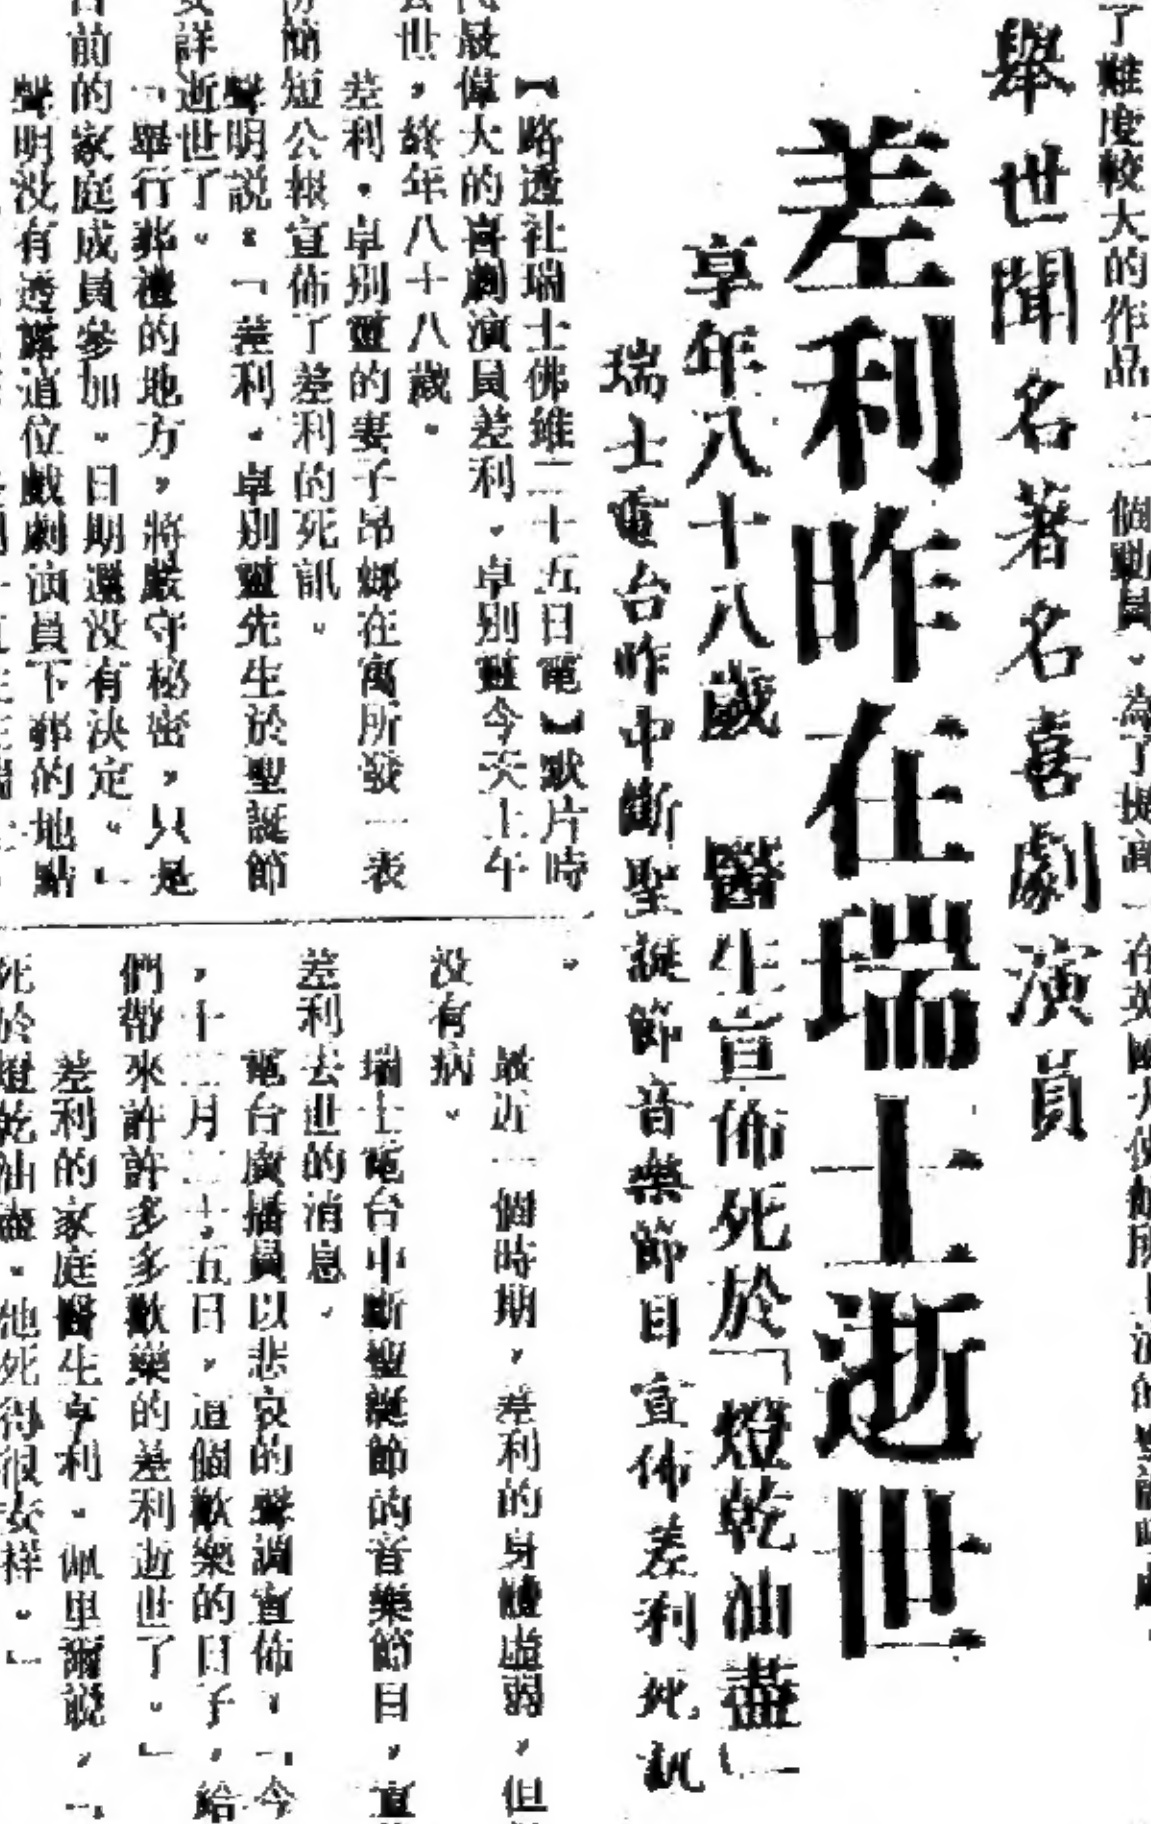 了難度較大的作品
舉世聞名著名喜劇演員
差利昨在瑞士逝世
享年八十八歲 醫生宣佈死於「燈乾油盡」
瑞士電台昨中斷聖誕節音樂節目宣佈差利死訊
【路透社瑞士佛維二十五日電】默片時
代最偉大的喜劇演員差利・卓別靈今天上午
去世,終年八十八歲。
差利・卓別靈的妻子昂娜在寓所發一表
份簡短公報宣佈了差利的死訊。
聲明說:「差利・卓別靈先生於聖誕節
安詳逝世了。
「舉行葬禮的地方,將嚴守秘密,只是
目前的家庭成員參加。日期還没有決定。」
聲明没有透露這位戲劇演員下葬的地點
。
最近一個時期,差利的身體虛弱,但
没有病。
瑞士電台中斷聖誕節的音樂節目,宣
差利去世的消息。
電台廣播員以悲哀的聲調宣佈:「今
,十二月二十五日,這個歡樂的日子,給
們帶來許許多多歡樂的差利逝世了。」
差利的家庭醫生亨利・佩里爾說:「
死於燈乾油盡。他死得很安祥。」